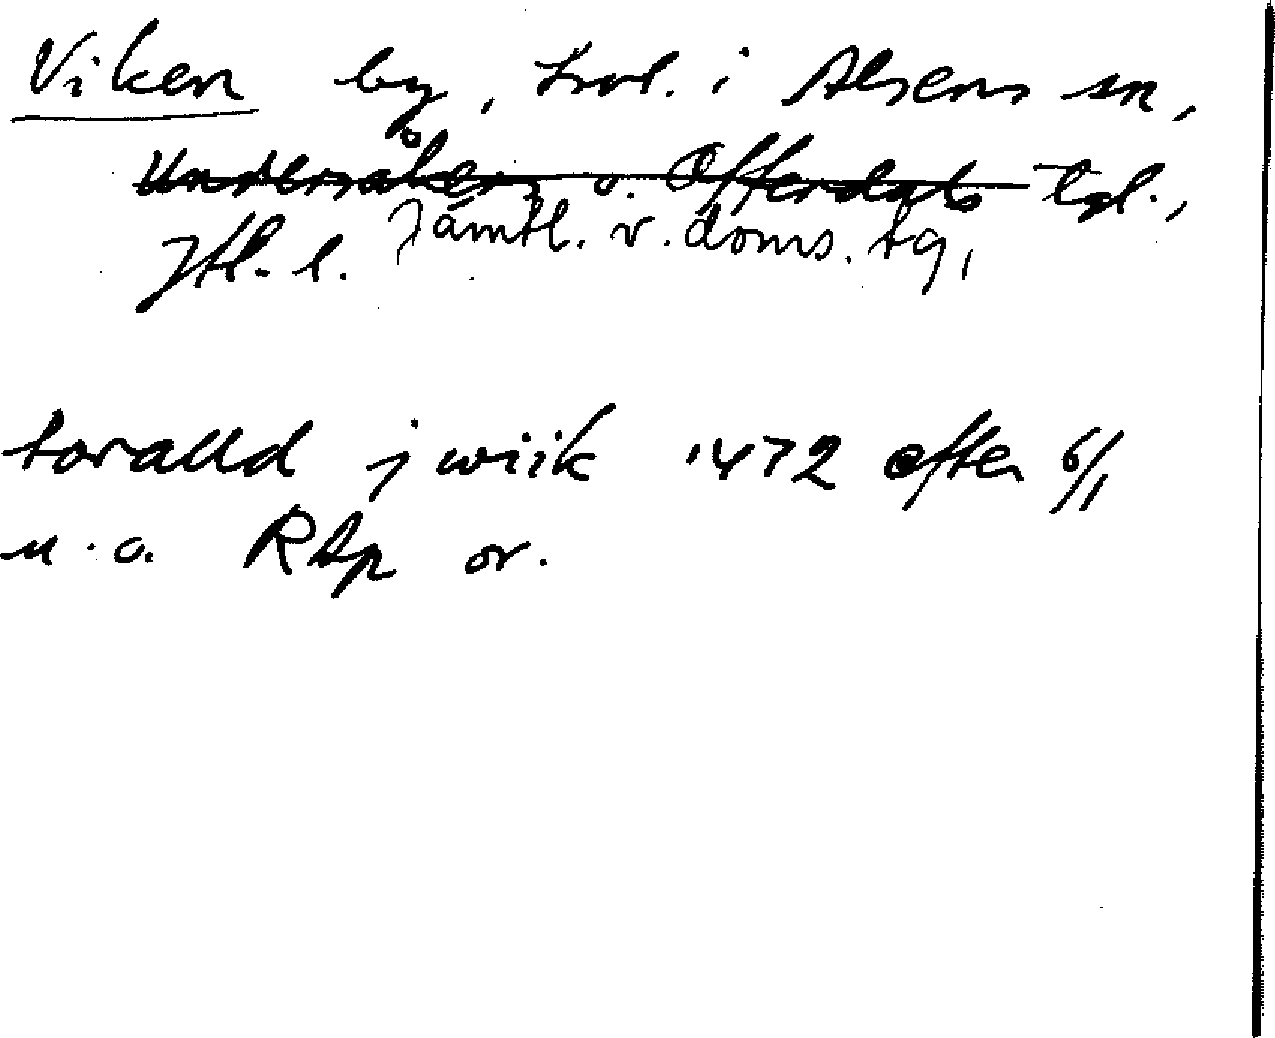 Viken by, trol. i Alsens sn,
Undersåkers o. Offerdals tgl.,
Jämtl. v. doms. tg,
Jtl. l.
toralld j wiik 1472 efter 6/1
u. o. RAp or.